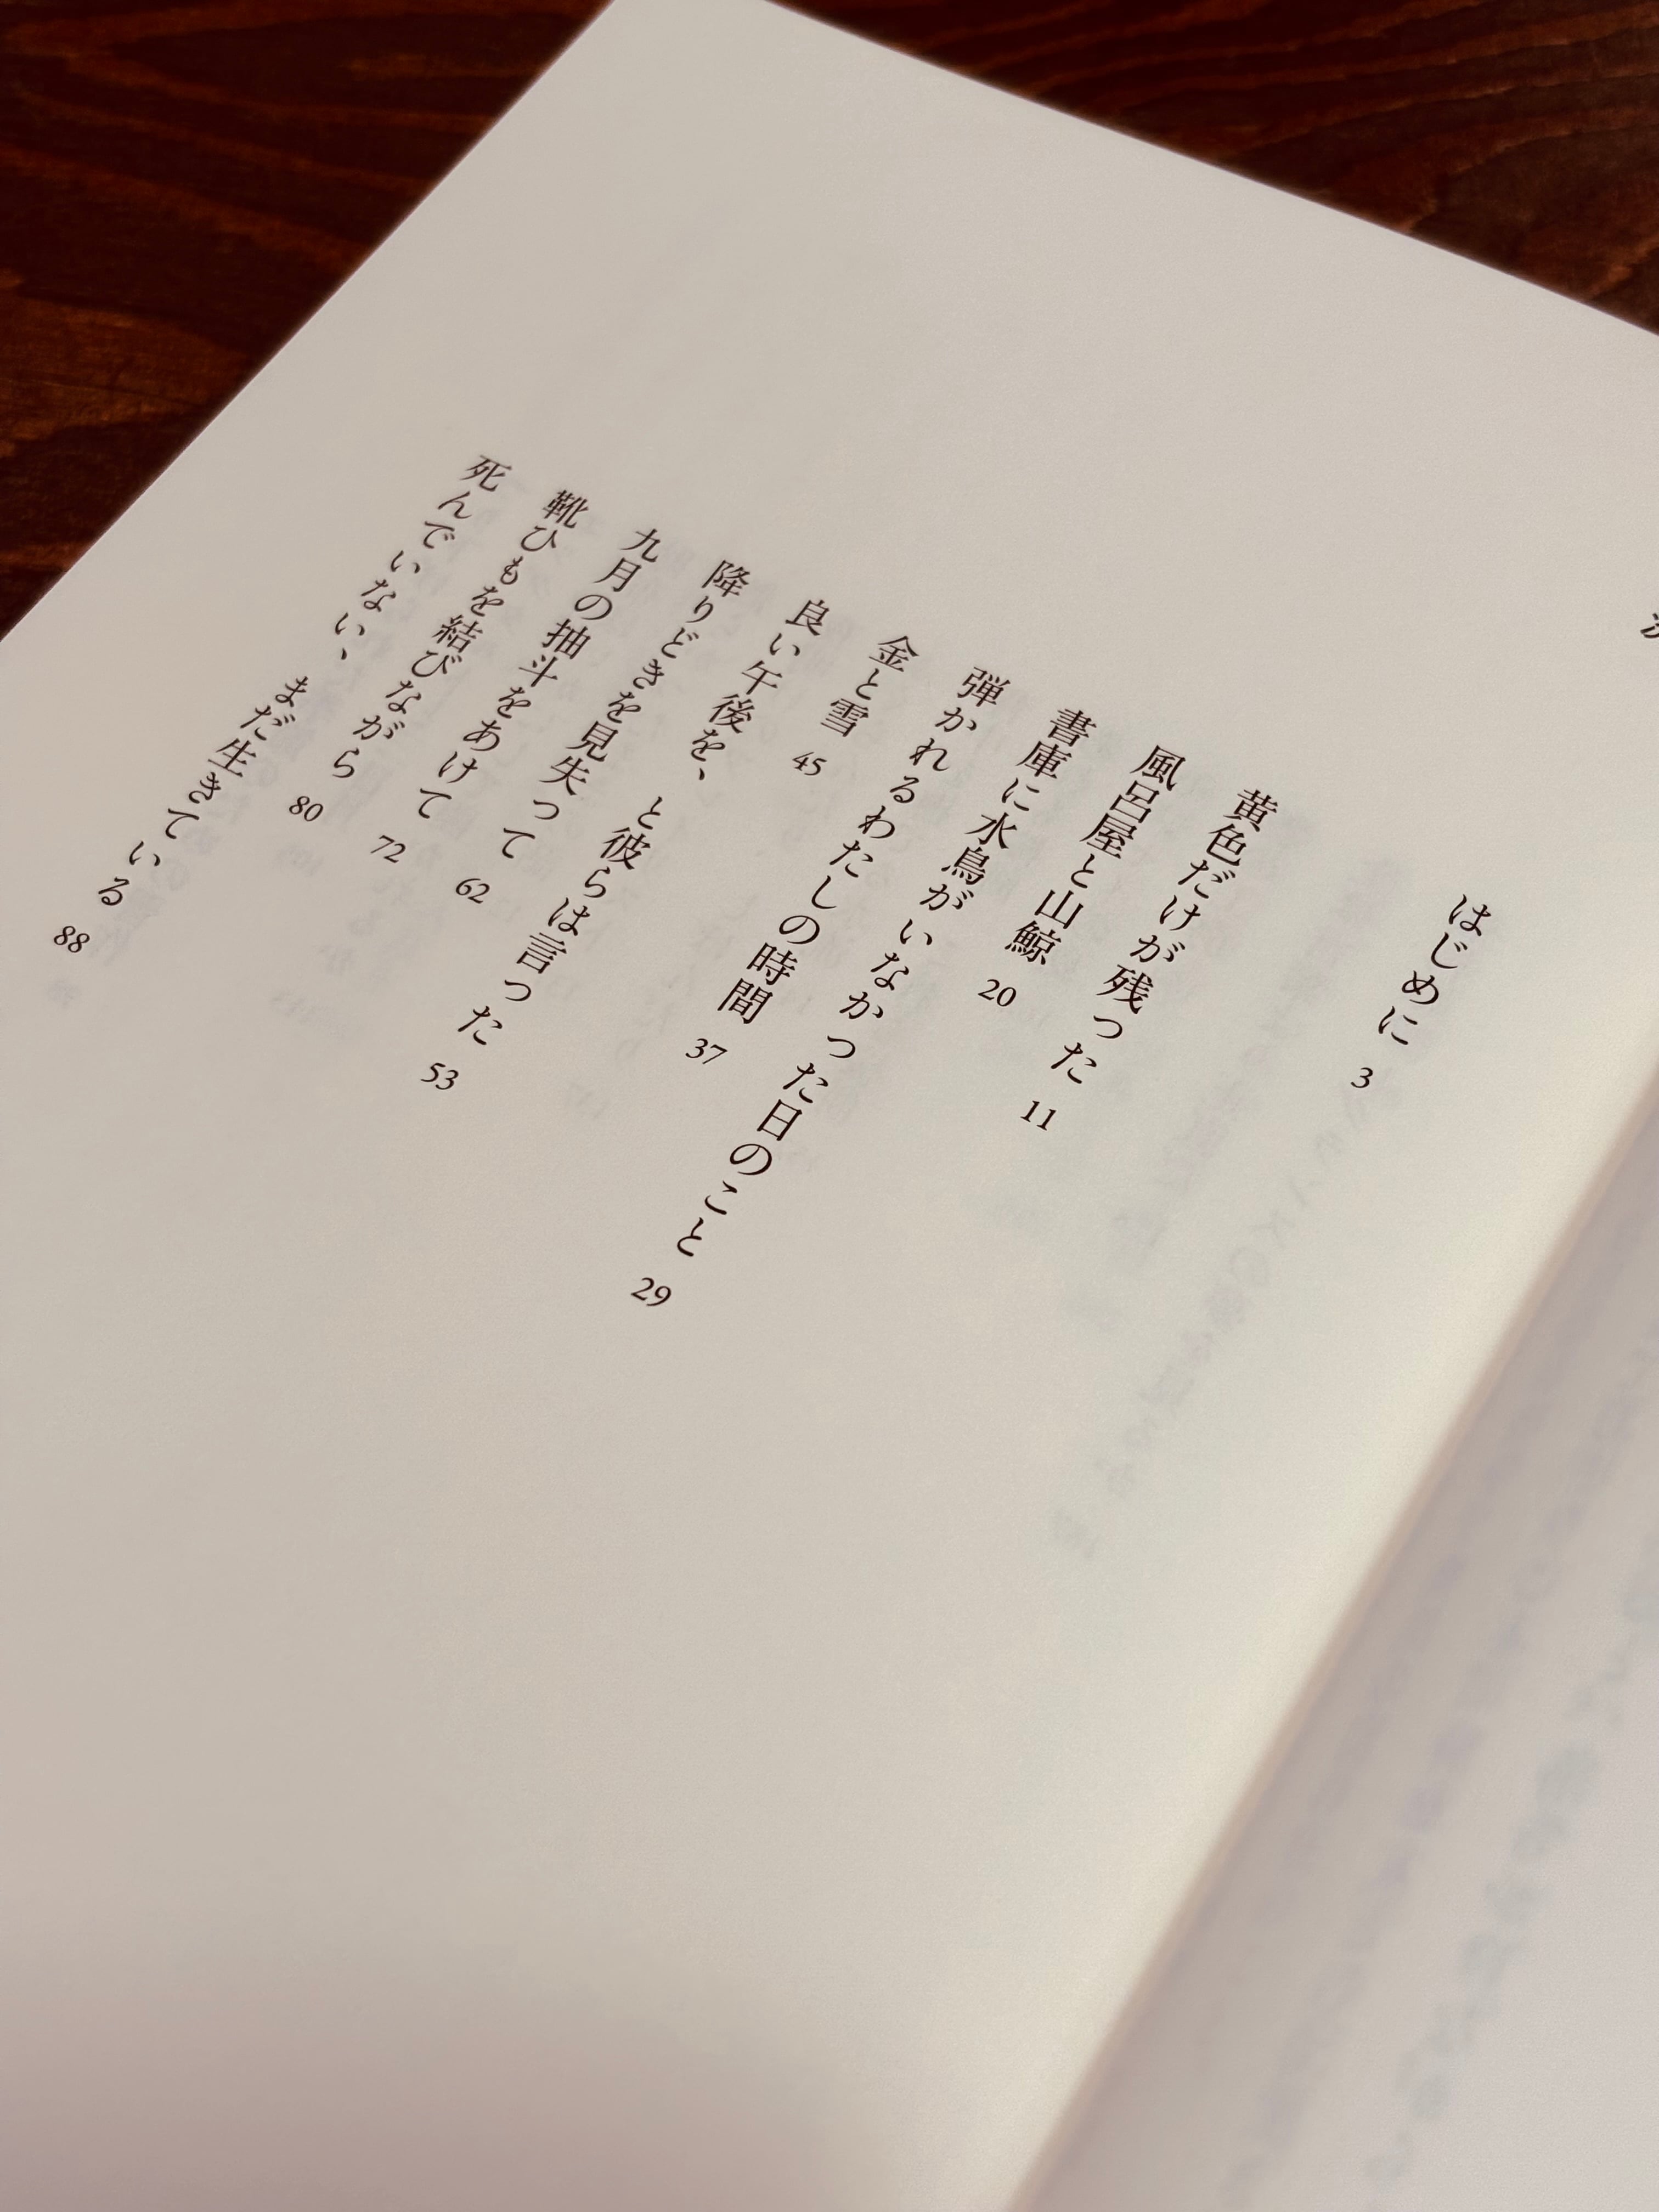 はじめに 3
黄色だけが残った 11
風呂屋と山鯨 20
書庫に水鳥がいなかった日のこと 29
弾かれるわたしの時間 37
金と雪 45
良い午後を、と彼らは言った 53
降りどきを見失って 62
九月の抽斗をあけて 72
靴ひもを結びながら 80
死んでいない、まだ生きている 88